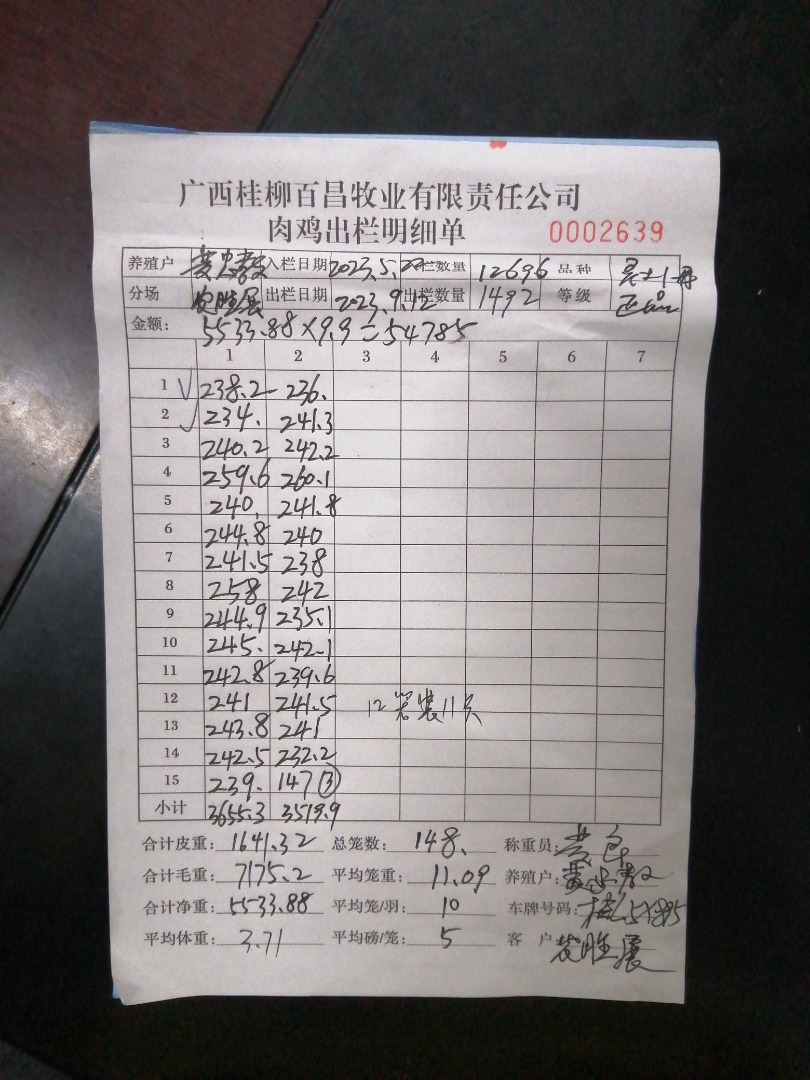 广西桂柳百昌牧业有限责任公司
肉鸡出栏明细单 0002639
养殖户 入栏日期 2023.5.22 栏数量 12696 品种
分场 发胜展 出栏日期 2023.9.12 出栏数量 1492 等级 正品
金额: 5533.88×9.9=54785
1 2 3 4 5 6 7
1 √ 238.2 236.
2 √ 234. 241.3
3 240.2 242.2
4 259.6 260.1
5 240. 241.8
6 244.8 240
7 241.5 238
8 258 242
9 244.9 235.1
10 245. 242.1
11 242.8 239.6
12 241 241.5 12笼装11只
13 243.8 241
14 242.5 232.2
15 239. 147 ③
小计 3655.3 3519.9
合计皮重: 1641.32 总笼数: 148. 称重员:
合计毛重: 7175.2 平均笼重: 11.09 养殖户:
合计净重: 5533.88 平均笼/羽: 10 车牌号码:
平均体重: 3.71 平均磅/笼: 5 客户: 发胜展